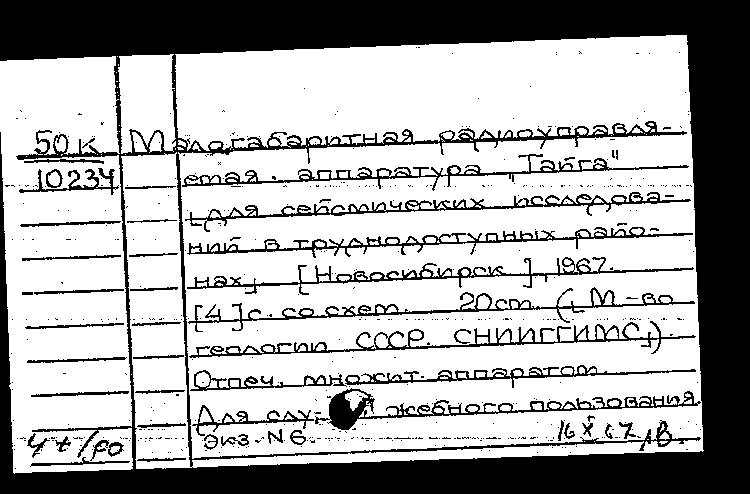 50к Малогабаритная радиоуправля-
10234 емая аппаратура "Тайга"
[для сейсмических исследова-
ний в труднодоступных райо-
нах], [Новосибирск], 1967.
[4]с. со схем. 20см. ([М-во
геологии СССР. СНИИГГИМС]).
Отпеч. множит. аппаратом.
Для слу- жебного пользования.
Экз. N6. 16 X 67